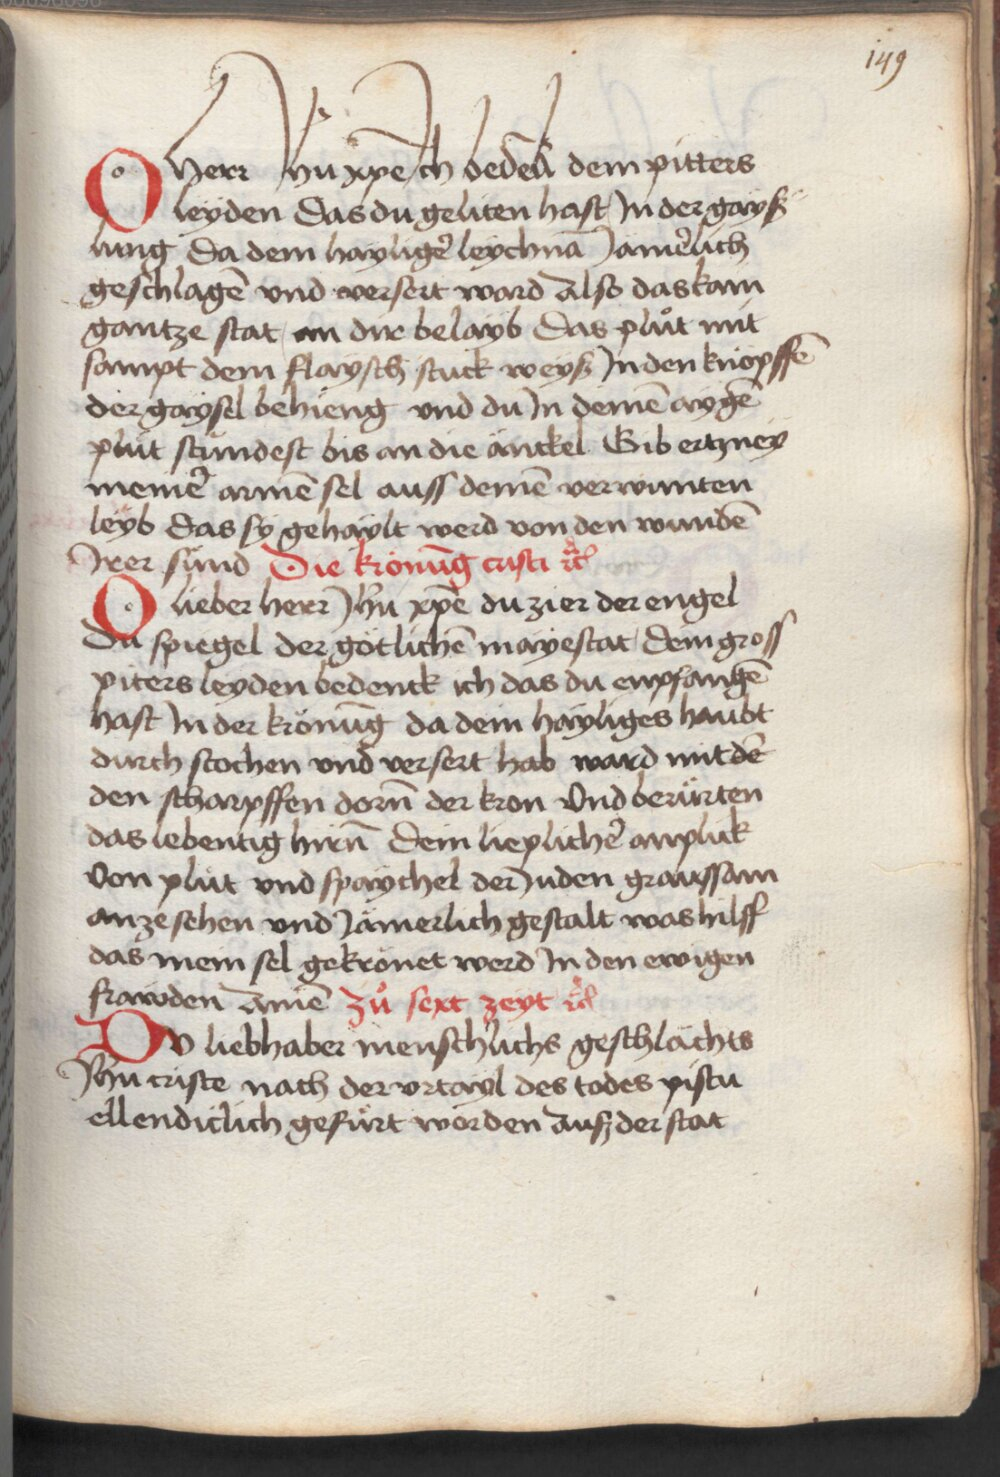 149
O Herr Jhu xp̄e Ich bedenck dem pitters
leyden Das du geliten hast In der gaysz
lung Da dein hayliger leychnā Jämerlich
geschlagē vnd versert ward Also das kain
gantze stat an dir belayb Das plůt mit
sampt dem flaysch stuck weyß In den knöpffē
der gaysel behieng vnd du In deinē aygē
plůt stündest bis an die änckel Gib ertzney
meiner armē sel auss deinē verwunten
leyb Das sy gehaylt werd von den wundē
Irer sünd Die krönūg cristi
O lieber herr Jhu xp̄e du zier der engel
Du spiegel der götlichē mayestat Dein gross
piters leyden bedenck ich das du enpfangē
hast In der krönūg da dein hayliges haubt
durch stochen vnd versert hab ward mit dē
den scharpffen dorn̄ der kron Vnd berürten
das lebentig hirn̄ Dein lieplicher anplick
von plůt vnd spaychel der Juden graussam
anzesehen vnd Jämerlich gestalt was hilff
das mein sel gekrönet werd In den ewigen
frawden Amē Zů sext zeyt
Du liebhaber menschlichs geschlächts
Jhu criste nach der vrtayl des todes pistu
ellendiclich gefürt worden Auß der stat